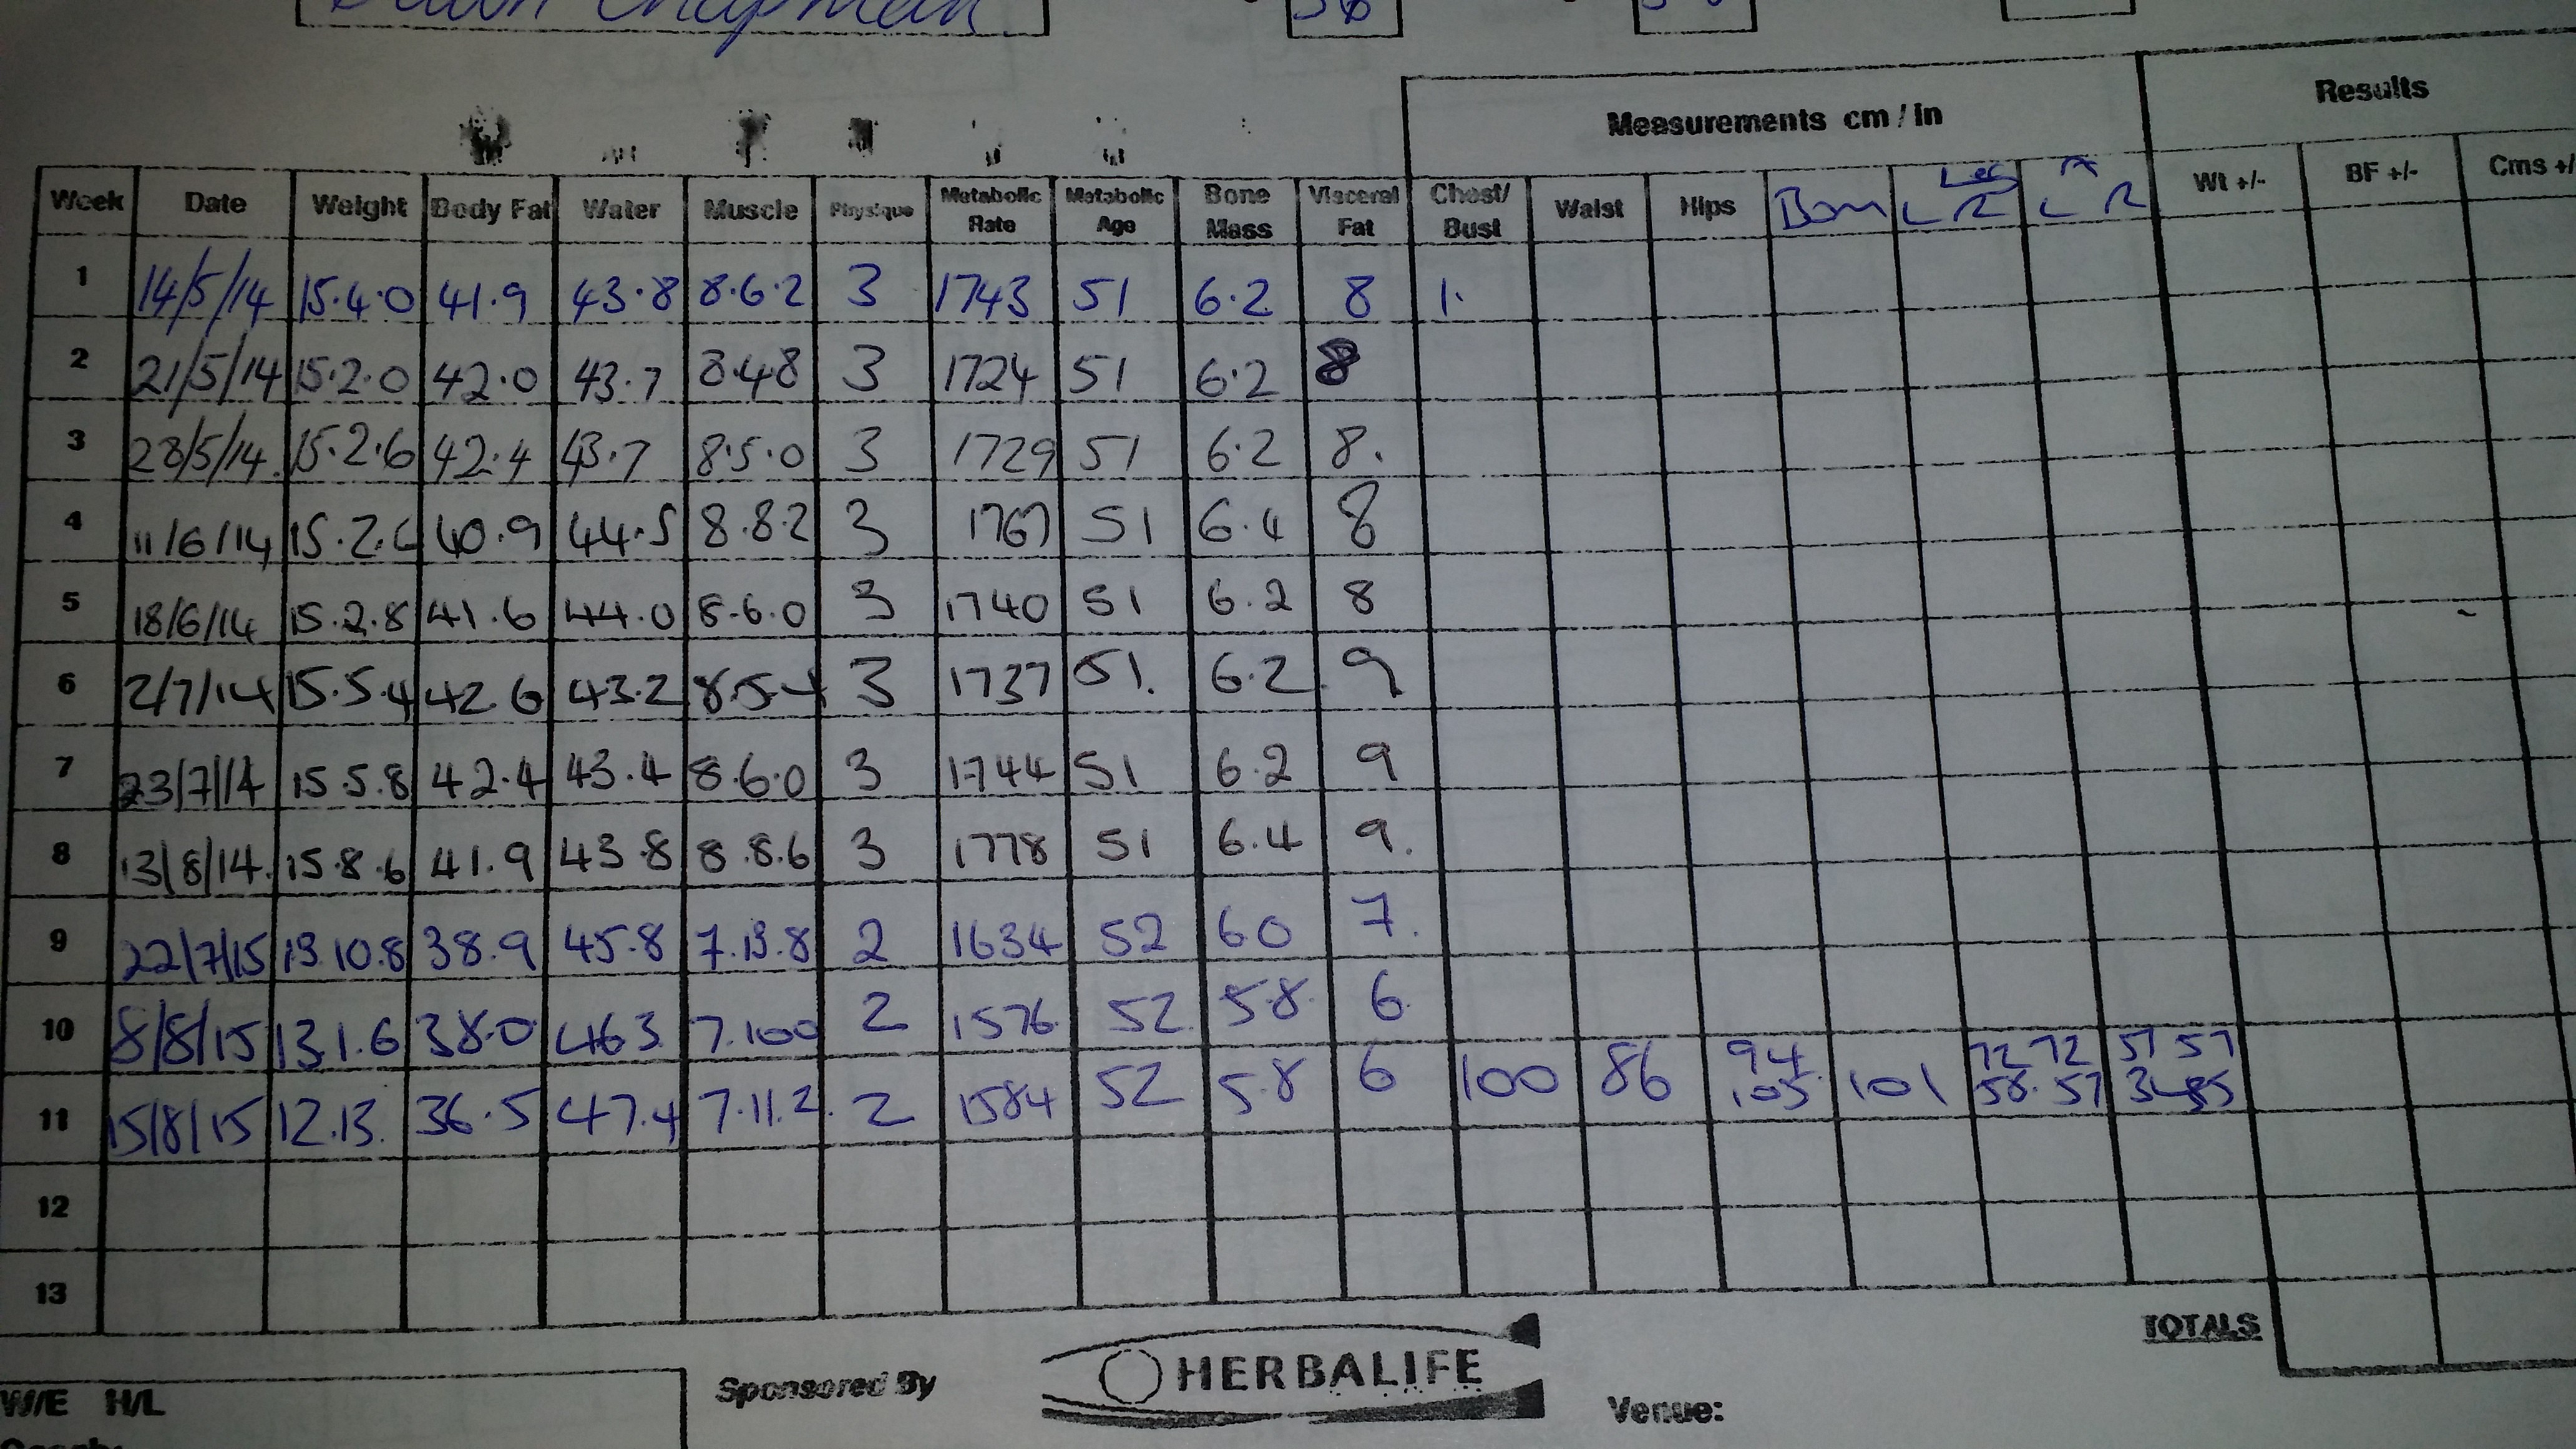 Chapman
Measurements cm / in
Results
Week Date Weight Body Fat Water Muscle Physique Metabolic Rate Metabolic Age Bone Mass Visceral Fat Chest/ Bust Waist Hips Bum Leg L R L R Wt +/- BF +/- Cms +/
1 14/5/14 15.4.0 41.9 43.8 8.6.2 3 1743 51 6.2 8 1.
2 21/5/14 15.2.0 42.0 43.7 8.4.8 3 1724 51 6.2 8
3 28/5/14 15.2.6 42.4 43.7 8.5.0 3 1729 51 6.2 8.
4 11/6/14 15.2.6 40.9 44.5 8.8.2 3 1767 51 6.4 8
5 18/6/14 15.2.8 41.6 44.0 8.6.0 3 1740 51 6.2 8
6 2/7/14 15.5.4 42.6 43.2 8.5.4 3 1737 51. 6.2 9
7 23/7/14 15.5.8 42.4 43.4 8.6.0 3 1744 51 6.2 9
8 13/8/14. 15.8.6 41.9 43.8 8.8.6 3 1778 51 6.4 9.
9 22/7/15 13.10.8 38.9 45.8 7.13.8 2 1634 52 60 7.
10 8/8/15 13.1.6 38.0 463 7.100 2 1576 52 5.8 6.
11 15/8/15 12.13. 36.5 47.4 7.11.2. 2 1584 52 5.8 6 100 86 94 105 101 72 72 58. 57 57 57
12
13
TOTALS
W/E H/L
Sponsored By HERBALIFE
Venue: